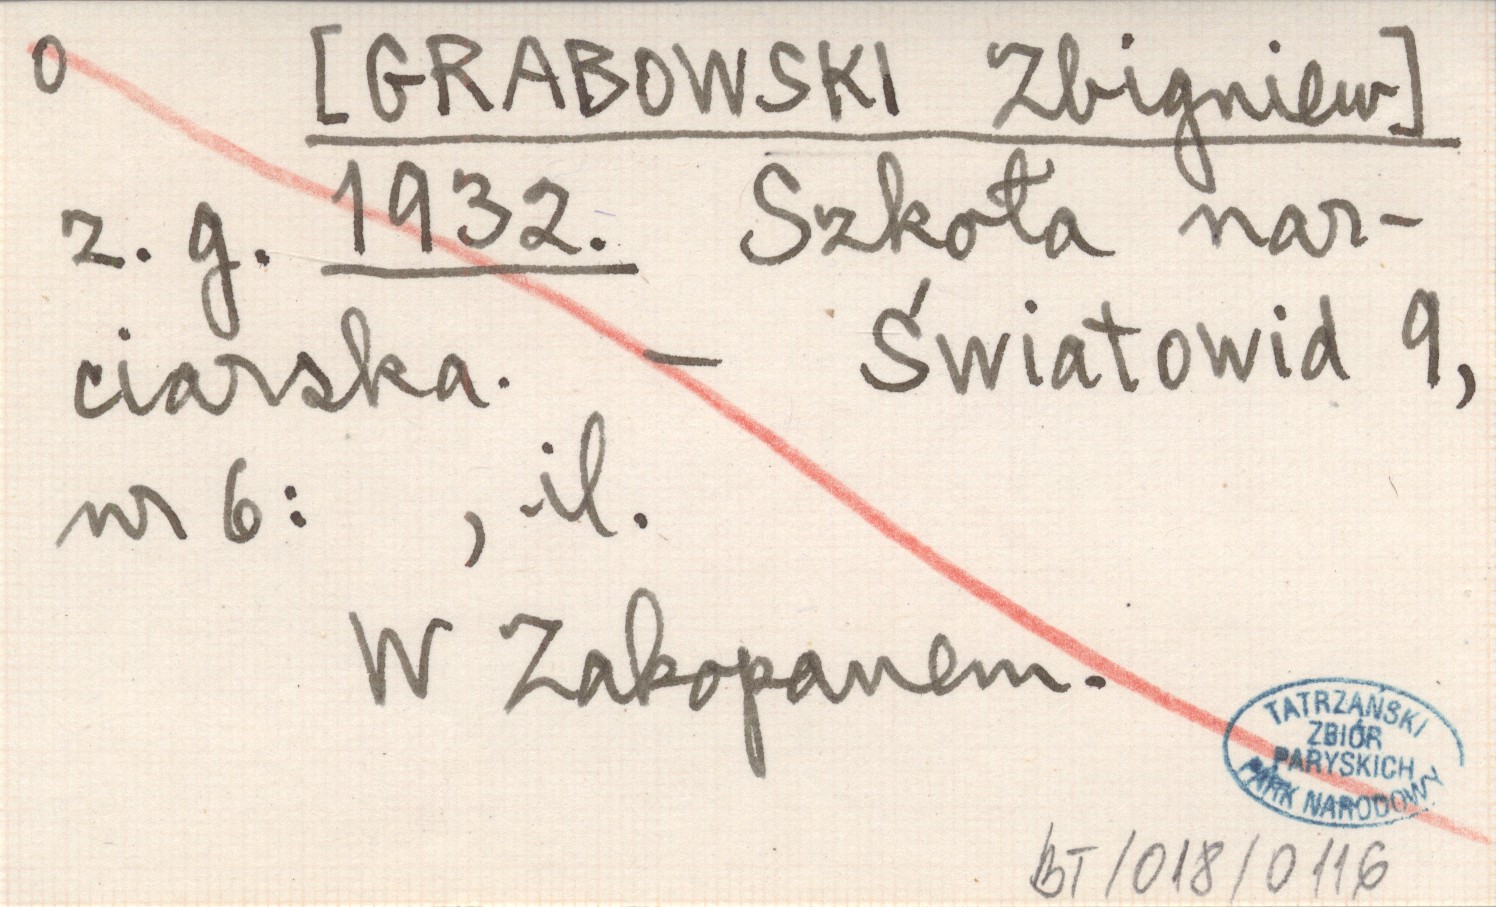 0 [GRABOWSKI Zbigniew]
z. g. 1932. Szkoła nar-
ciarska. — Światowid 9,
nr 6: , il.
W Zakopanem.
TATRZAŃSKI
ZBIÓR
PARYSKICH
PARK NARODOWY
BT/018/0116